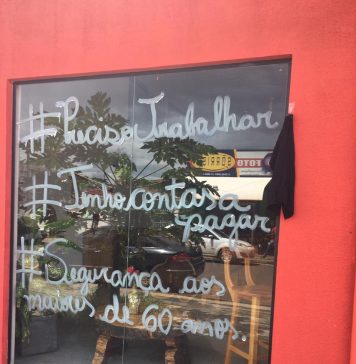 #PrecisoTrabalhar
#Tenhocontasa
pagar
#Segurança aos
maiores de 60 anos.
SORRIS
FOTO